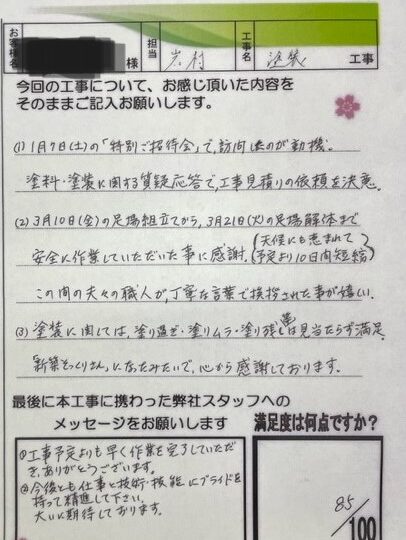 お客様名 様 担当 岩村 工事名 塗装 工事
今回の工事について、お感じ頂いた内容を
そのままご記入お願いします。
(1) 1月7日(土)の「特別ご招待会」で、訪問したのが動機。
塗料・塗装に関する質疑応答で、工事見積りの依頼を決意。
(2) 3月10日(金)の足場組立てから、3月21日(火)の足場解体まで
安全に作業していただいた事に感謝。(天候にも恵まれて
予定より10日間短縮)
この間の夫々の職人が、丁寧な言葉で挨拶された事が嬉しい。
(3) 塗装に関しては、塗り過ぎ・塗りムラ・塗り残し等は見当たらず満足。
「新築そっくりさん」になったみたいで、心から感謝しております。
最後に本工事に携わった弊社スタッフへの
メッセージをお願いします
満足度は何点ですか?
①工事予定よりも早く作業を完了していただ
き、ありがとうございます。
②今後とも仕事と技術・技能にプライドを
持って精進して下さい。
大いに期待しております。
85/100